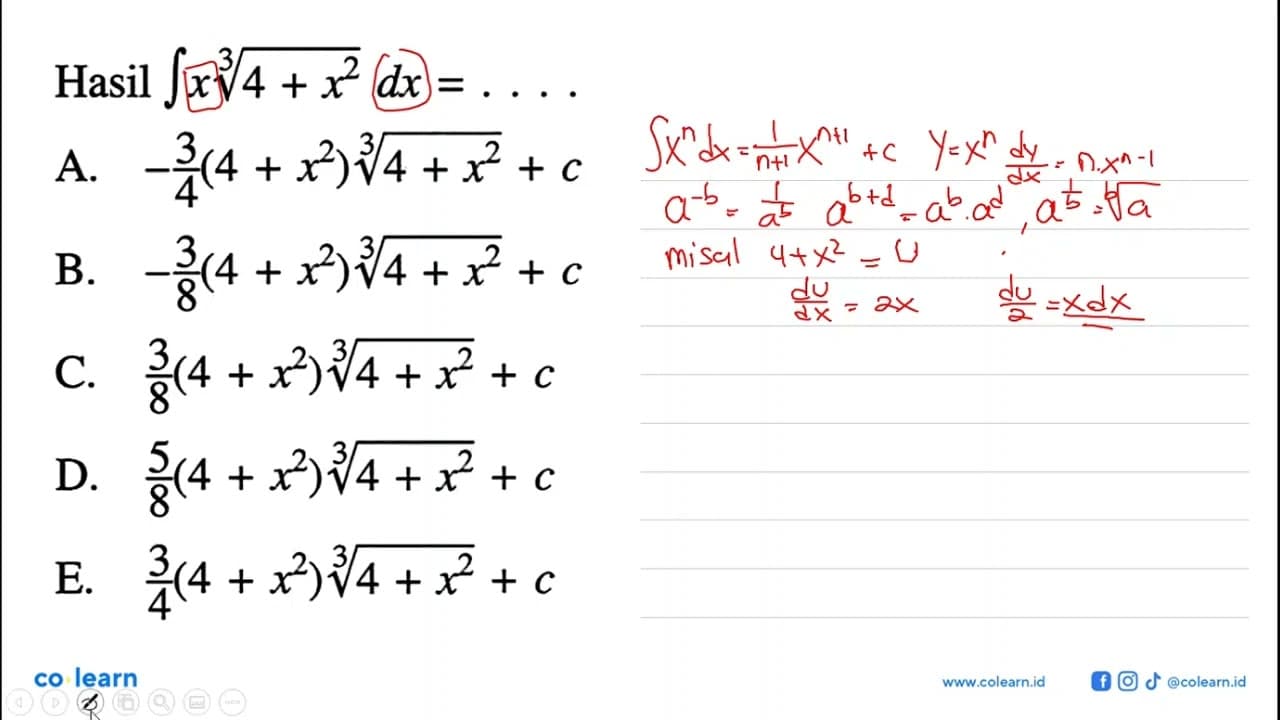 Hasil ∫x∛(4 + x²) dx = . . . .
A. −3/4(4 + x²)∛(4 + x²) + c
B. −3/8(4 + x²)∛(4 + x²) + c
C. 3/8(4 + x²)∛(4 + x²) + c
D. 5/8(4 + x²)∛(4 + x²) + c
E. 3/4(4 + x²)∛(4 + x²) + c
∫xⁿdx = 1/(n+1) xⁿ⁺¹ + c y=xⁿ dy/dx = n.xⁿ⁻¹
a^(-b) = 1/a^b a^(b+d) = a^b.a^d , a^(1/b) = ᵇ√a
misal 4+x² = U
du/dx = 2x du/2 = xdx
co learn
www.colearn.id @colearn.id